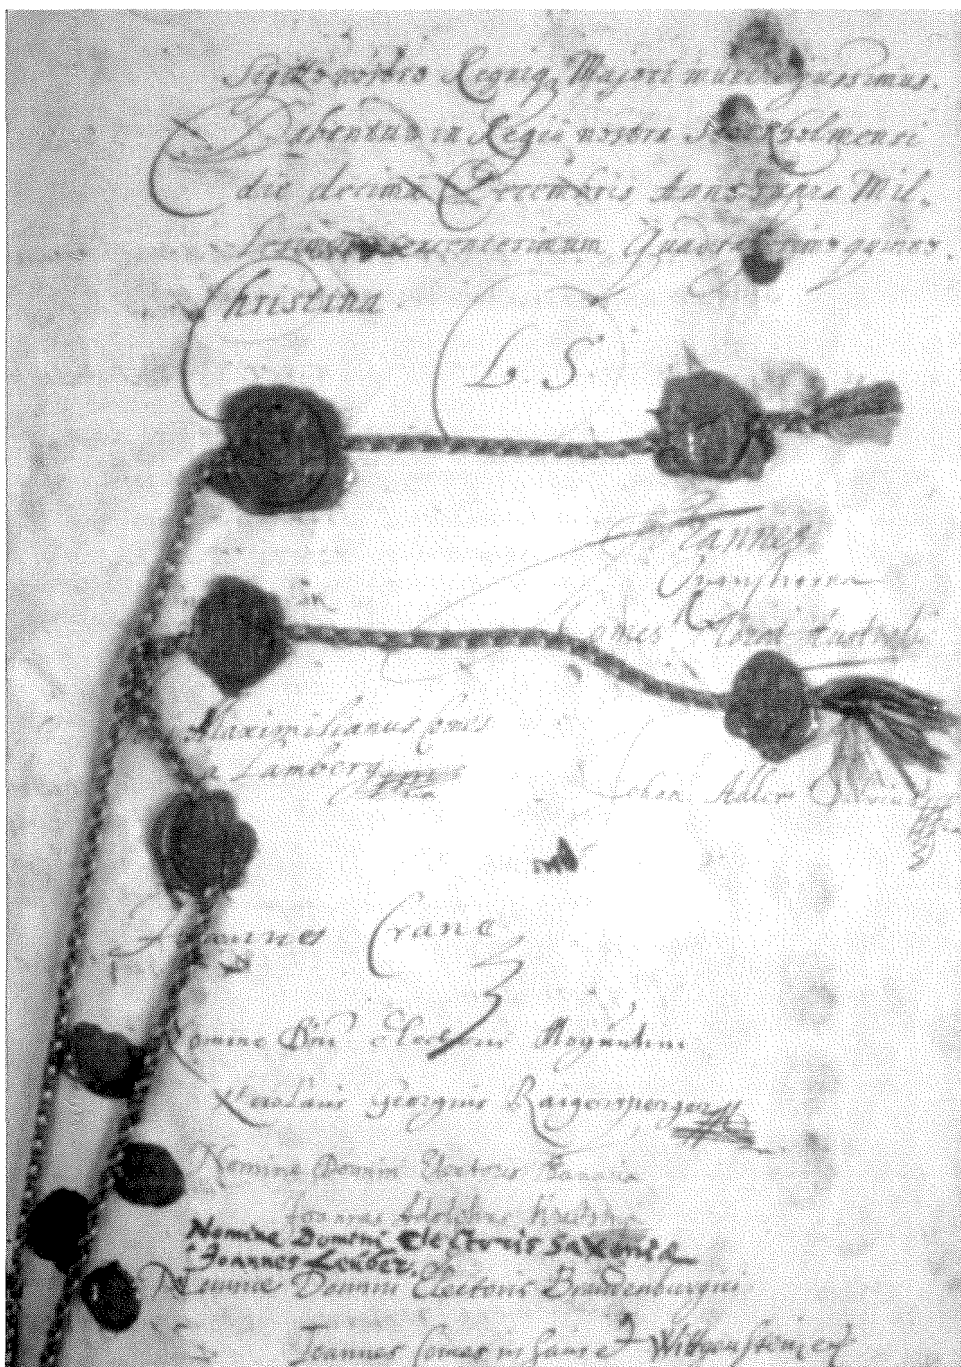 Sigillo nostro Regioq, Majori muniri jussimus.
Dabantur in Regia nostra Stockholmensi
die decima Decembris Anno supra Mil-
lesimum sexcentesimum Quadragesimo quinto.
Christina.
L. S.
Johannes
Oxenstierna
Comes
Maximilianus Comes
a Lamberg
Johan Adler Salvius
Joannes Crane
Nomine Dni Electoris Moguntini
Nicolaus Georgius Raigersperger
Nomine Domini Electoris Bavariae
Joannes Adolphus Krebs
Nomine Domini Electoris Saxoniae
Joannes Leuber.
Nomine Domini Electoris Brandenburgici
Joannes Comes in Sain et Wittgenstein